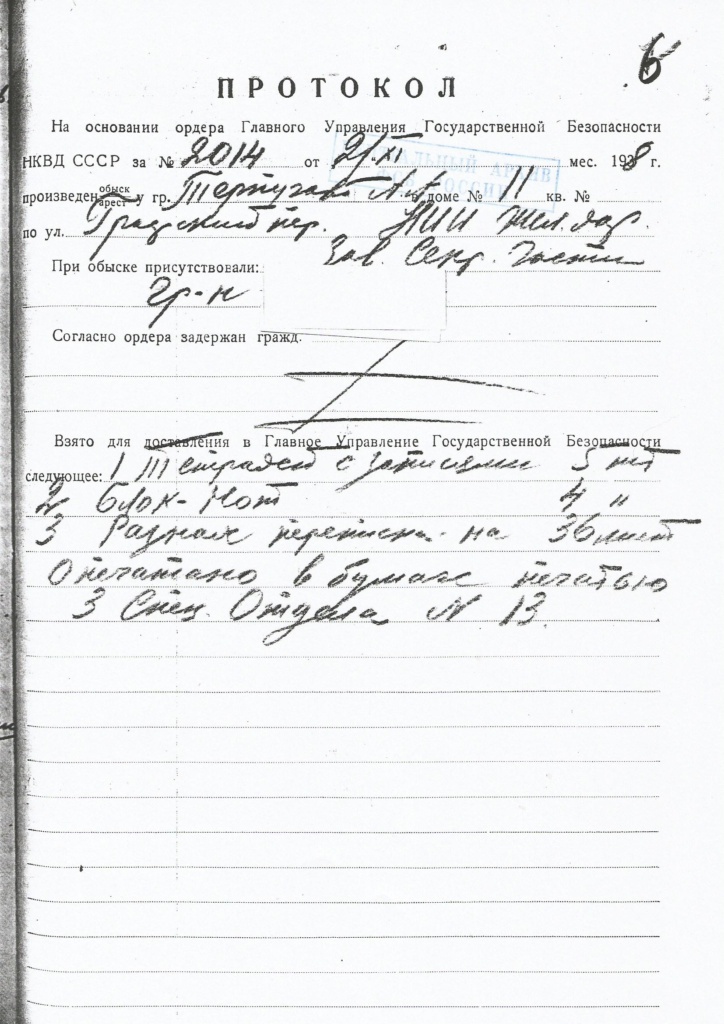 6
ПРОТОКОЛ
На основании ордера Главного Управления Государственной Безопасности
НКВД СССР за № 2014 от 21/XI мес. 1938 г.
произведен обыск/арест у гр. А.А. в доме № 11 кв. №
по ул. пер. НИИ
При обыске присутствовали: Зав. Секр. Части
Гр-н
Согласно ордера задержан гражд.
Взято для доставления в Главное Управление Государственной Безопасности
следующее: 1 Тетрадей с записями 5 шт
2 Блок-Нот 4 "
3 Разная переписка на 36 лист
Опечатано в бумаге печатью
3 Спец. Отдела N 13.